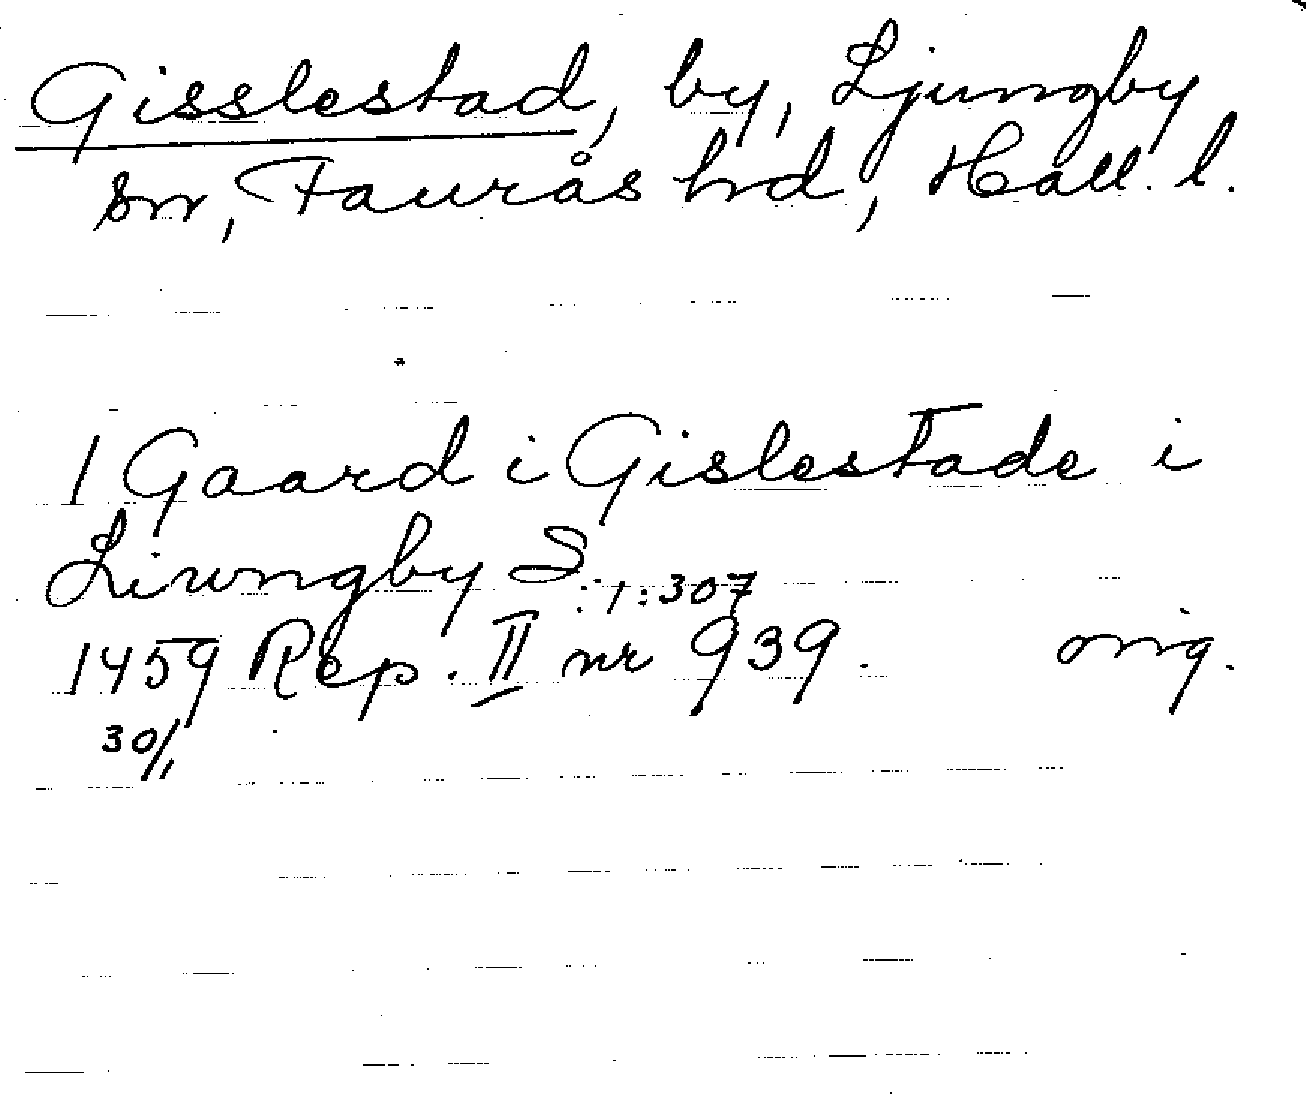 Gisslestad, by, Ljungby
sn, Faurås hd, Hall. l.
1 Gaard i Gislestade i
Liwngby S.
:1:307
1459 Rep. II nr 939. orig.
30/1